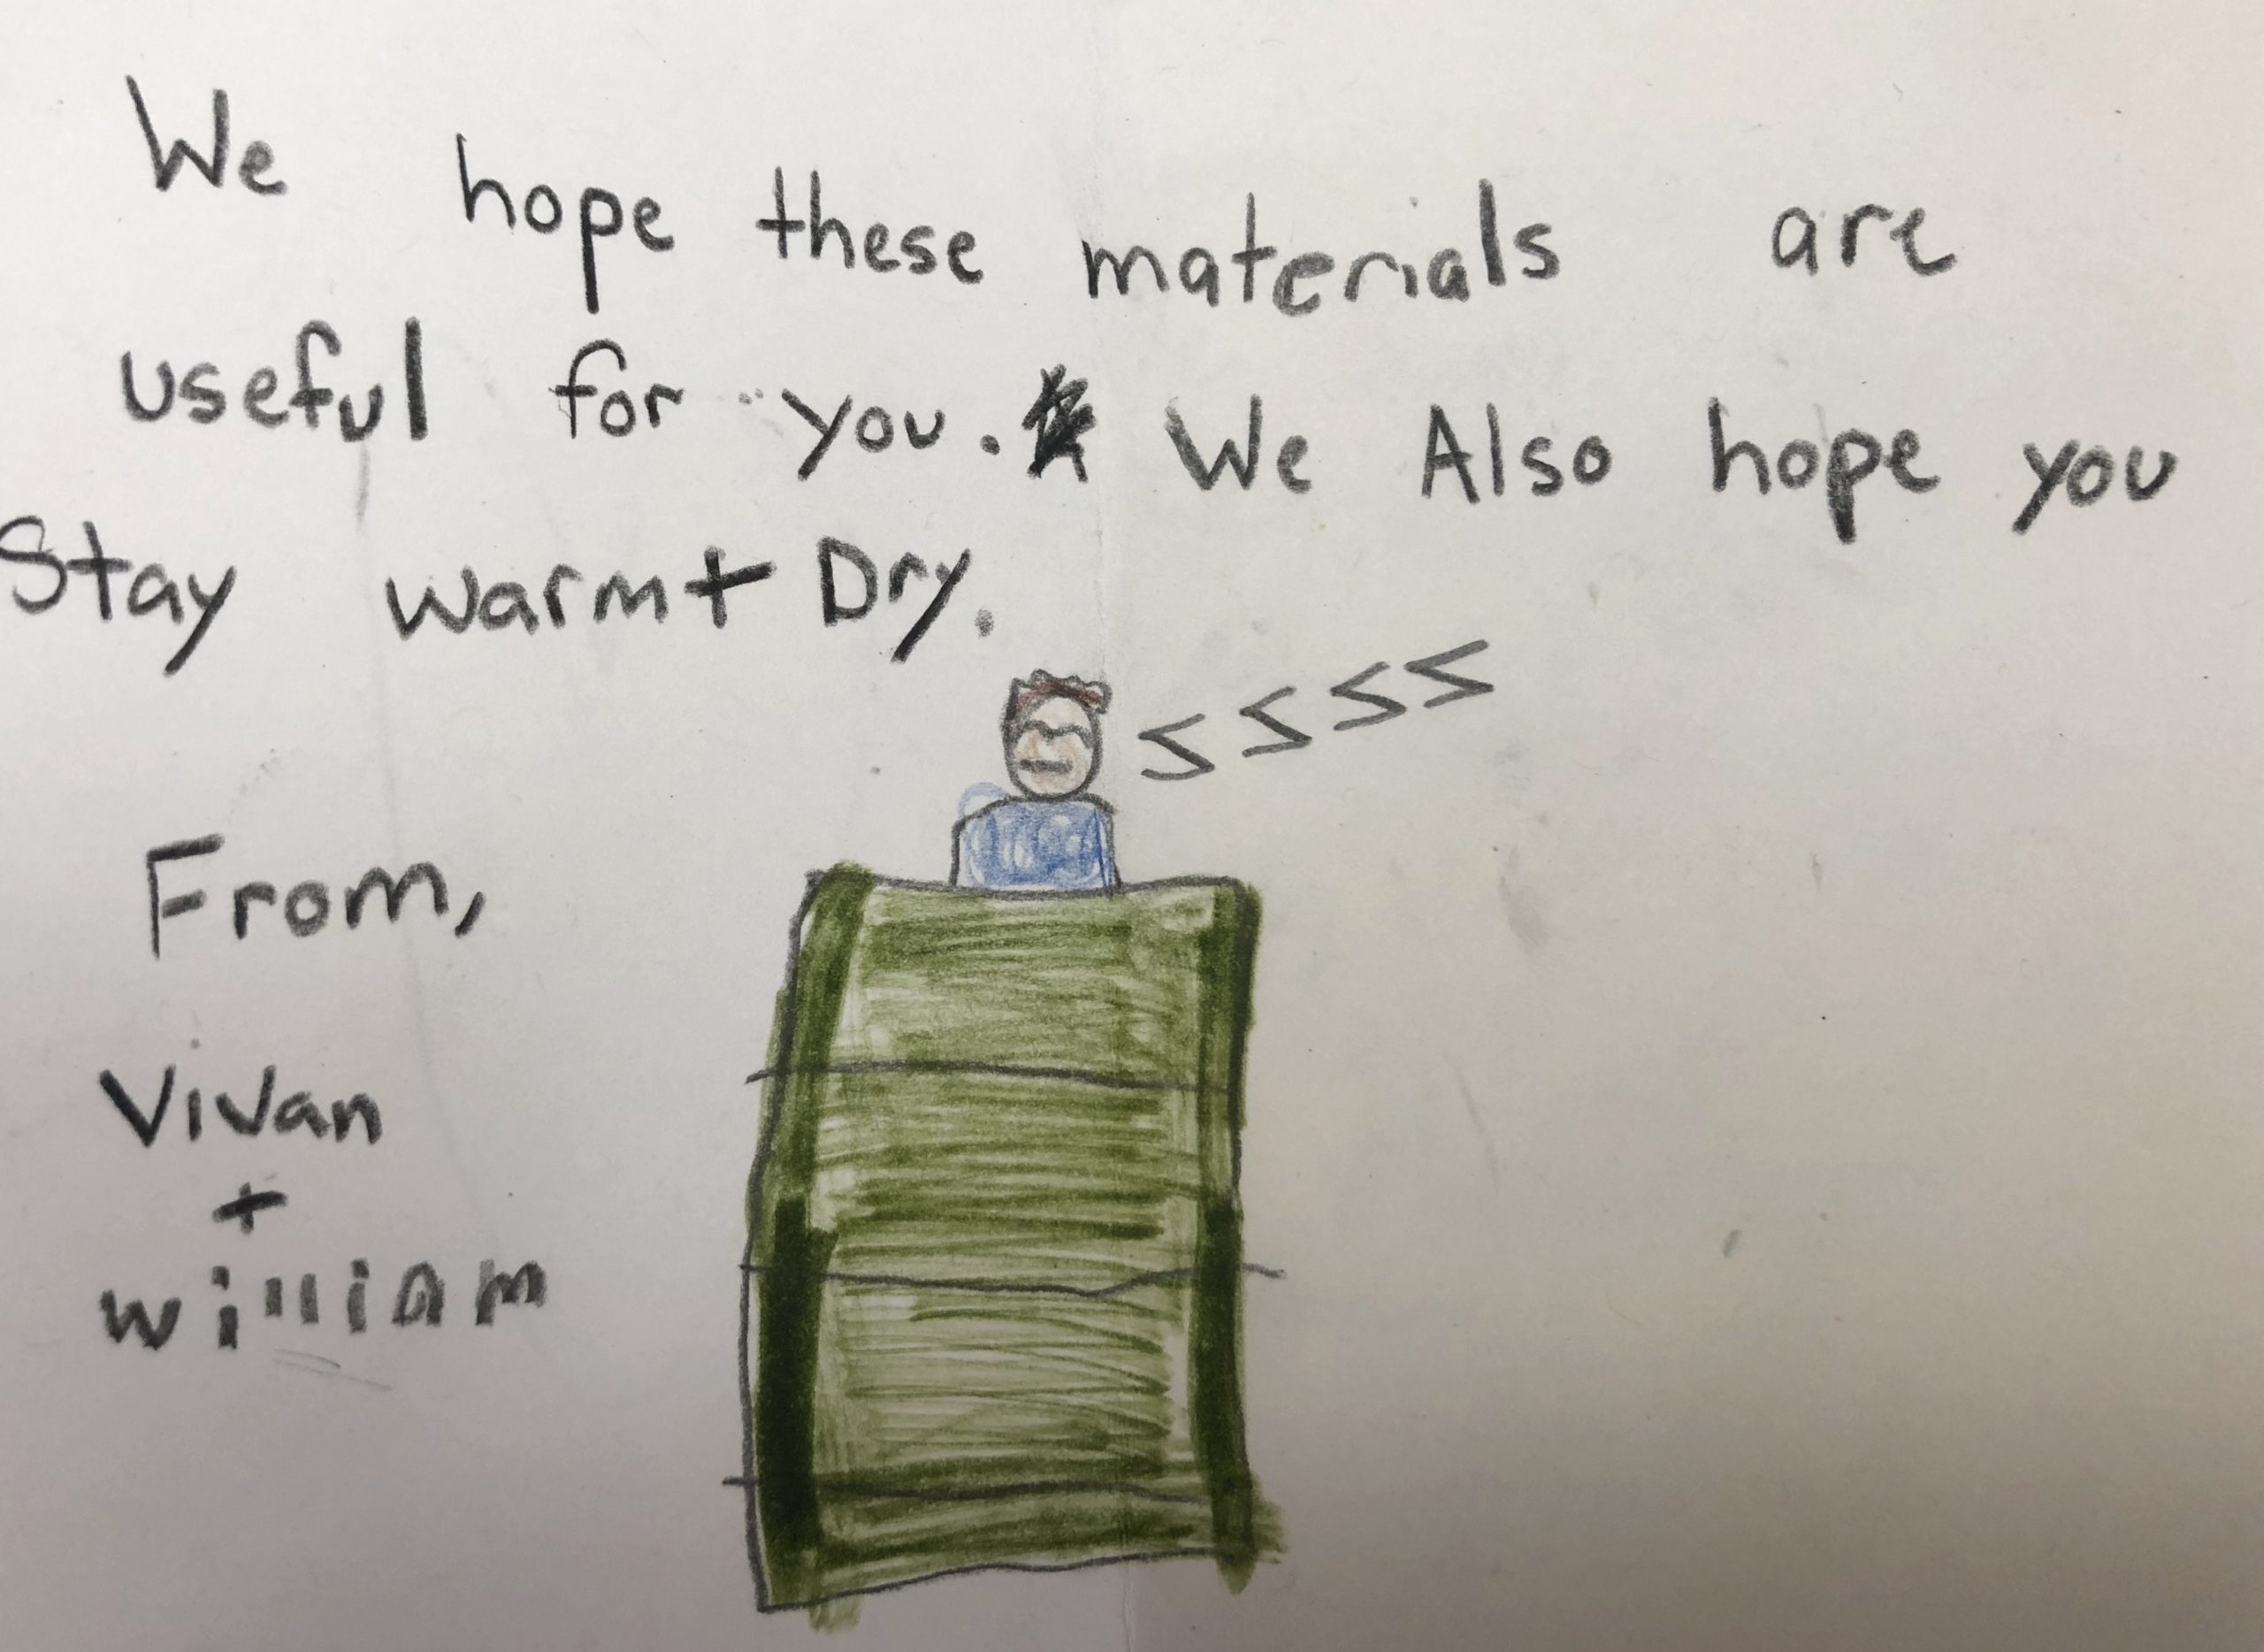 We hope these materials are
useful for you. We Also hope you
Stay warm + Dry.
SSSS
From,
Vivan
+
william